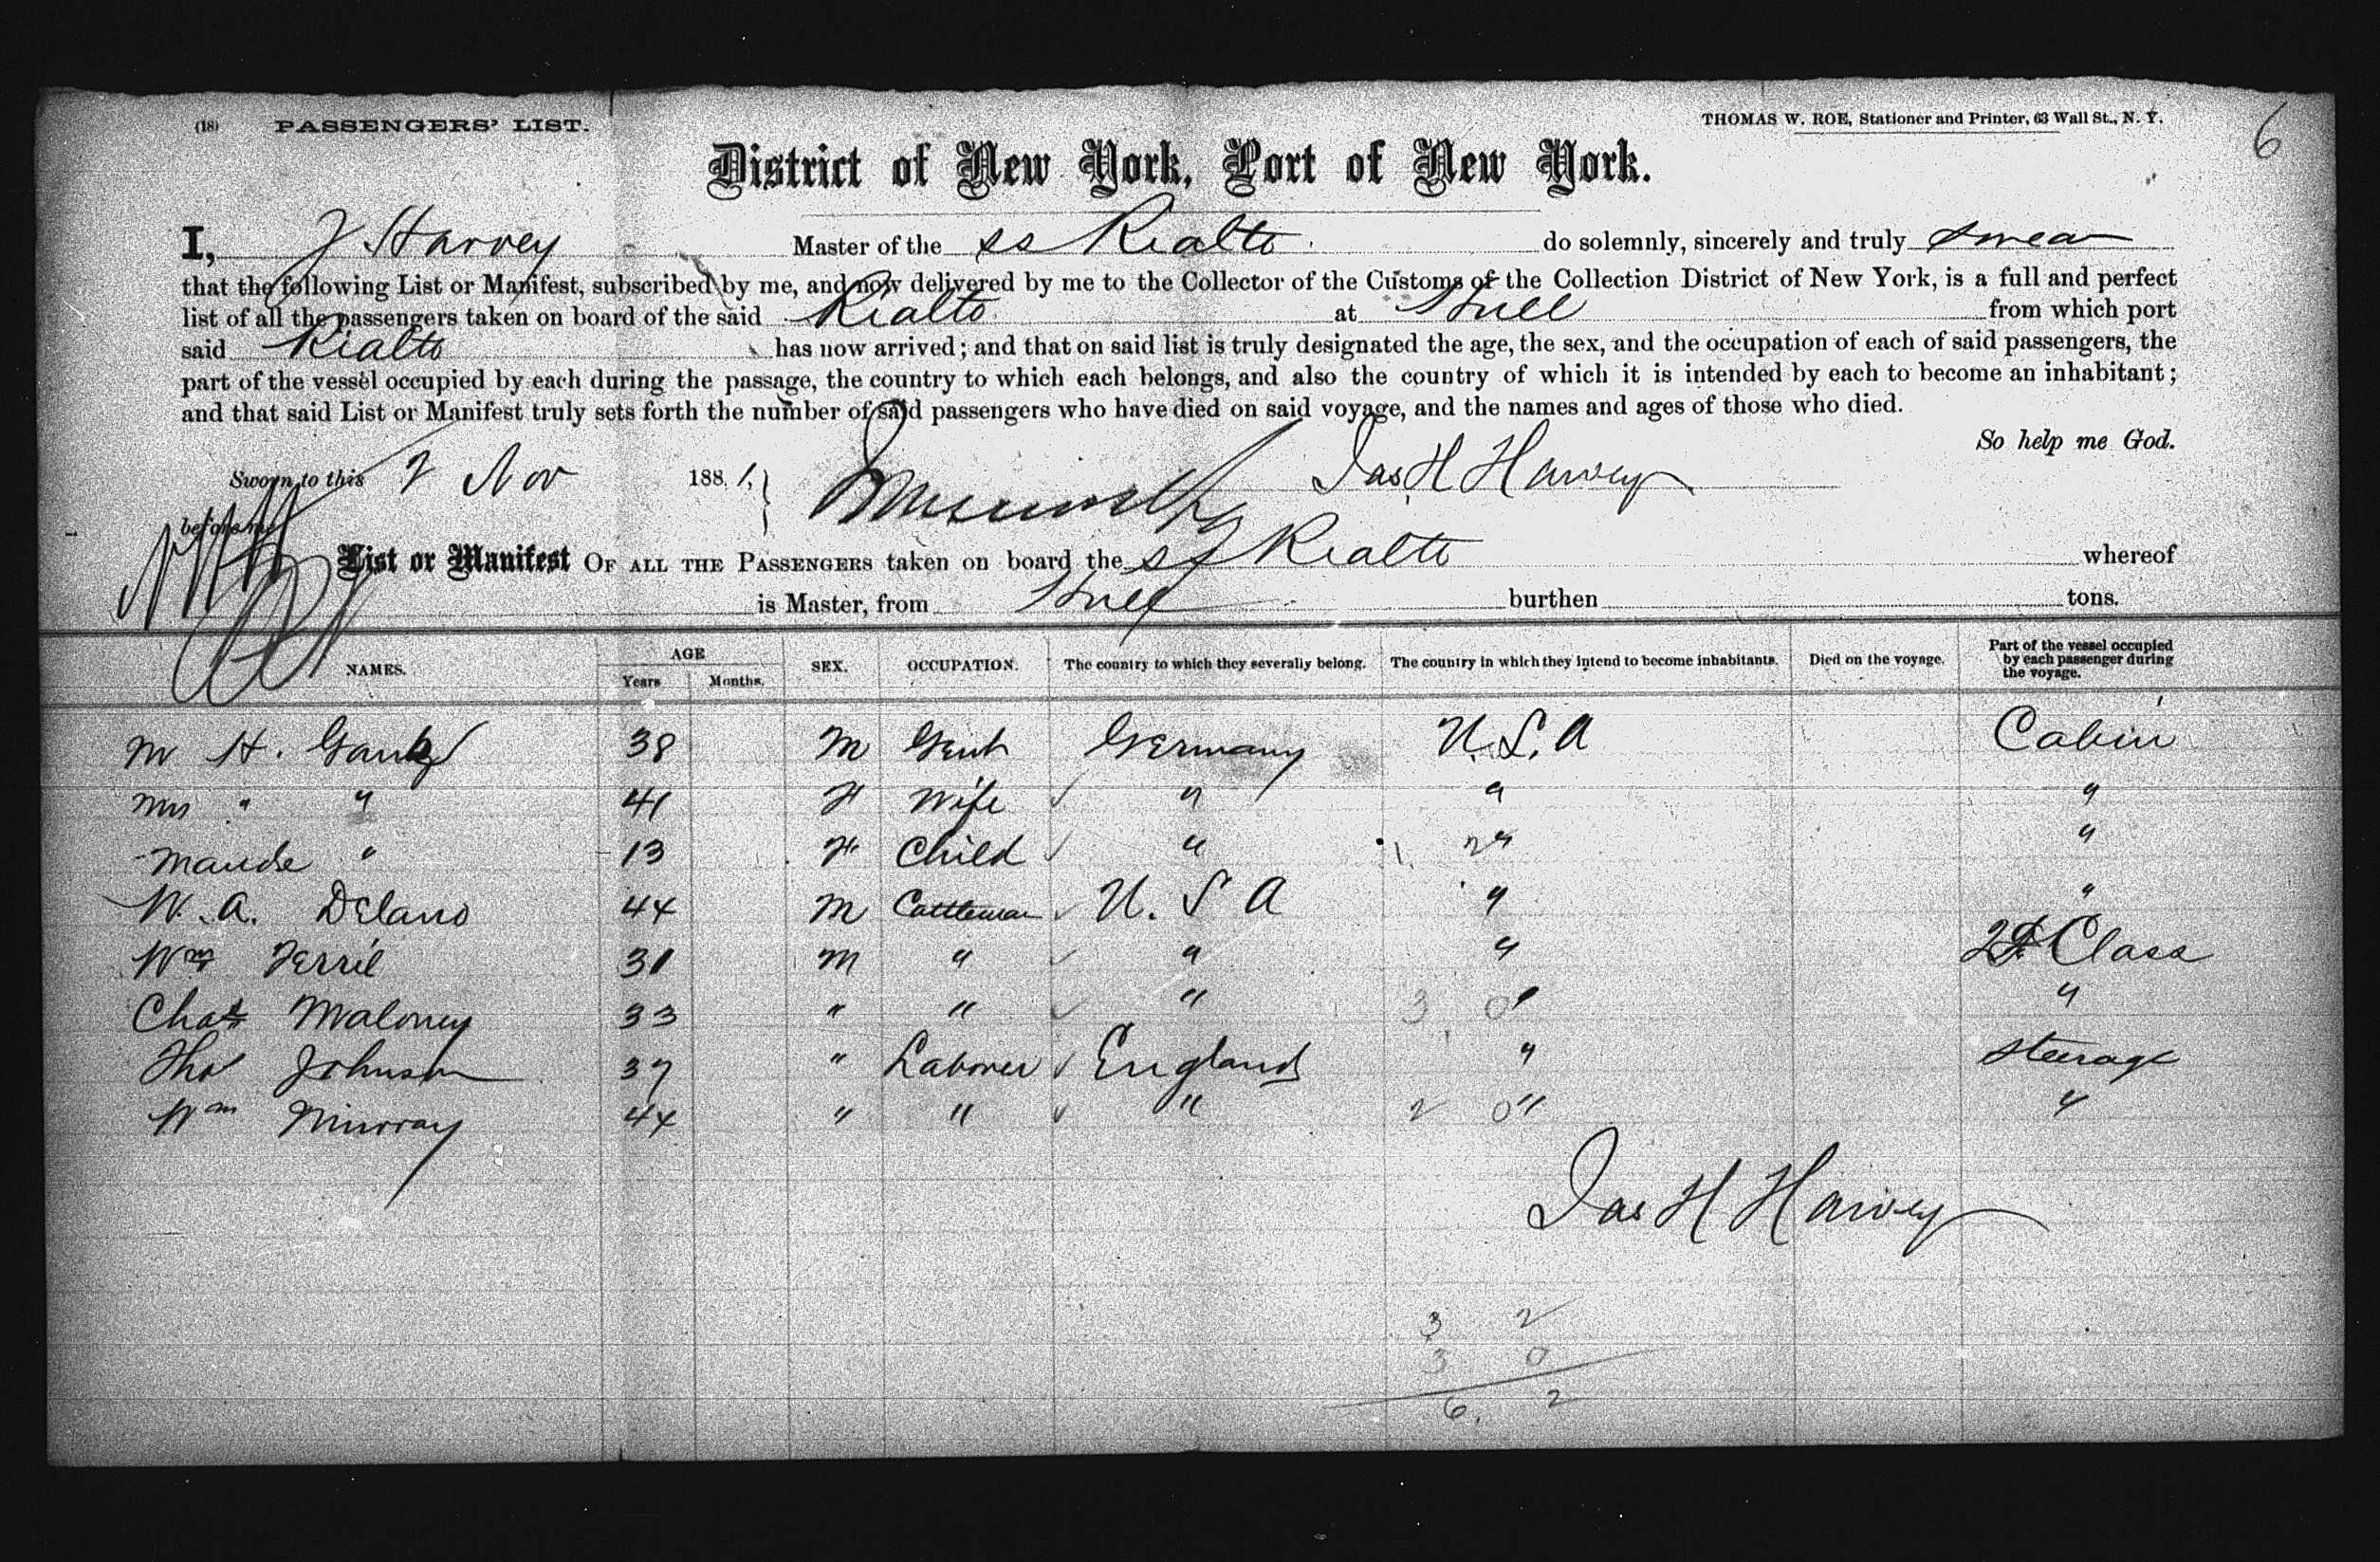 (18) PASSENGERS' LIST. THOMAS W. ROE, Stationer and Printer, 63 Wall St., N. Y. 6
District of New York, Port of New York.
I, J Harvey Master of the ss Rialto do solemnly, sincerely and truly swear
that the following List or Manifest, subscribed by me, and now delivered by me to the Collector of the Customs of the Collection District of New York, is a full and perfect
list of all the passengers taken on board of the said Rialto at Hull from which port
said Rialto has now arrived; and that on said list is truly designated the age, the sex, and the occupation of each of said passengers, the
part of the vessel occupied by each during the passage, the country to which each belongs, and also the country of which it is intended by each to become an inhabitant;
and that said List or Manifest truly sets forth the number of said passengers who have died on said voyage, and the names and ages of those who died.
So help me God.
Sworn to this 2 Nov 1881, Jas H Harvey
before me
List or Manifest OF ALL THE PASSENGERS taken on board the ss Rialto whereof
is Master, from Hull burthen tons.
NAMES. AGE Years Months. SEX. OCCUPATION. The country to which they severally belong. The country in which they intend to become inhabitants. Died on the voyage. Part of the vessel occupied by each passenger during the voyage.
M H. 38 M Gent Germany U.S.A Cabin
Mrs " " 41 F Wife " " "
Maude " 13 F Child " 1. 2 " "
W. A. Delano 44 M Cattleman U. S A " "
Wm Ferril 31 M " " " 2d Class
Chas Maloney 33 " " " 3 0 " "
Tho Johnson 37 " Laborer England " Steerage
Wm Murray 44 " " " 2 0 " "
Jas H Harvey
3 2
3 0
6. 2